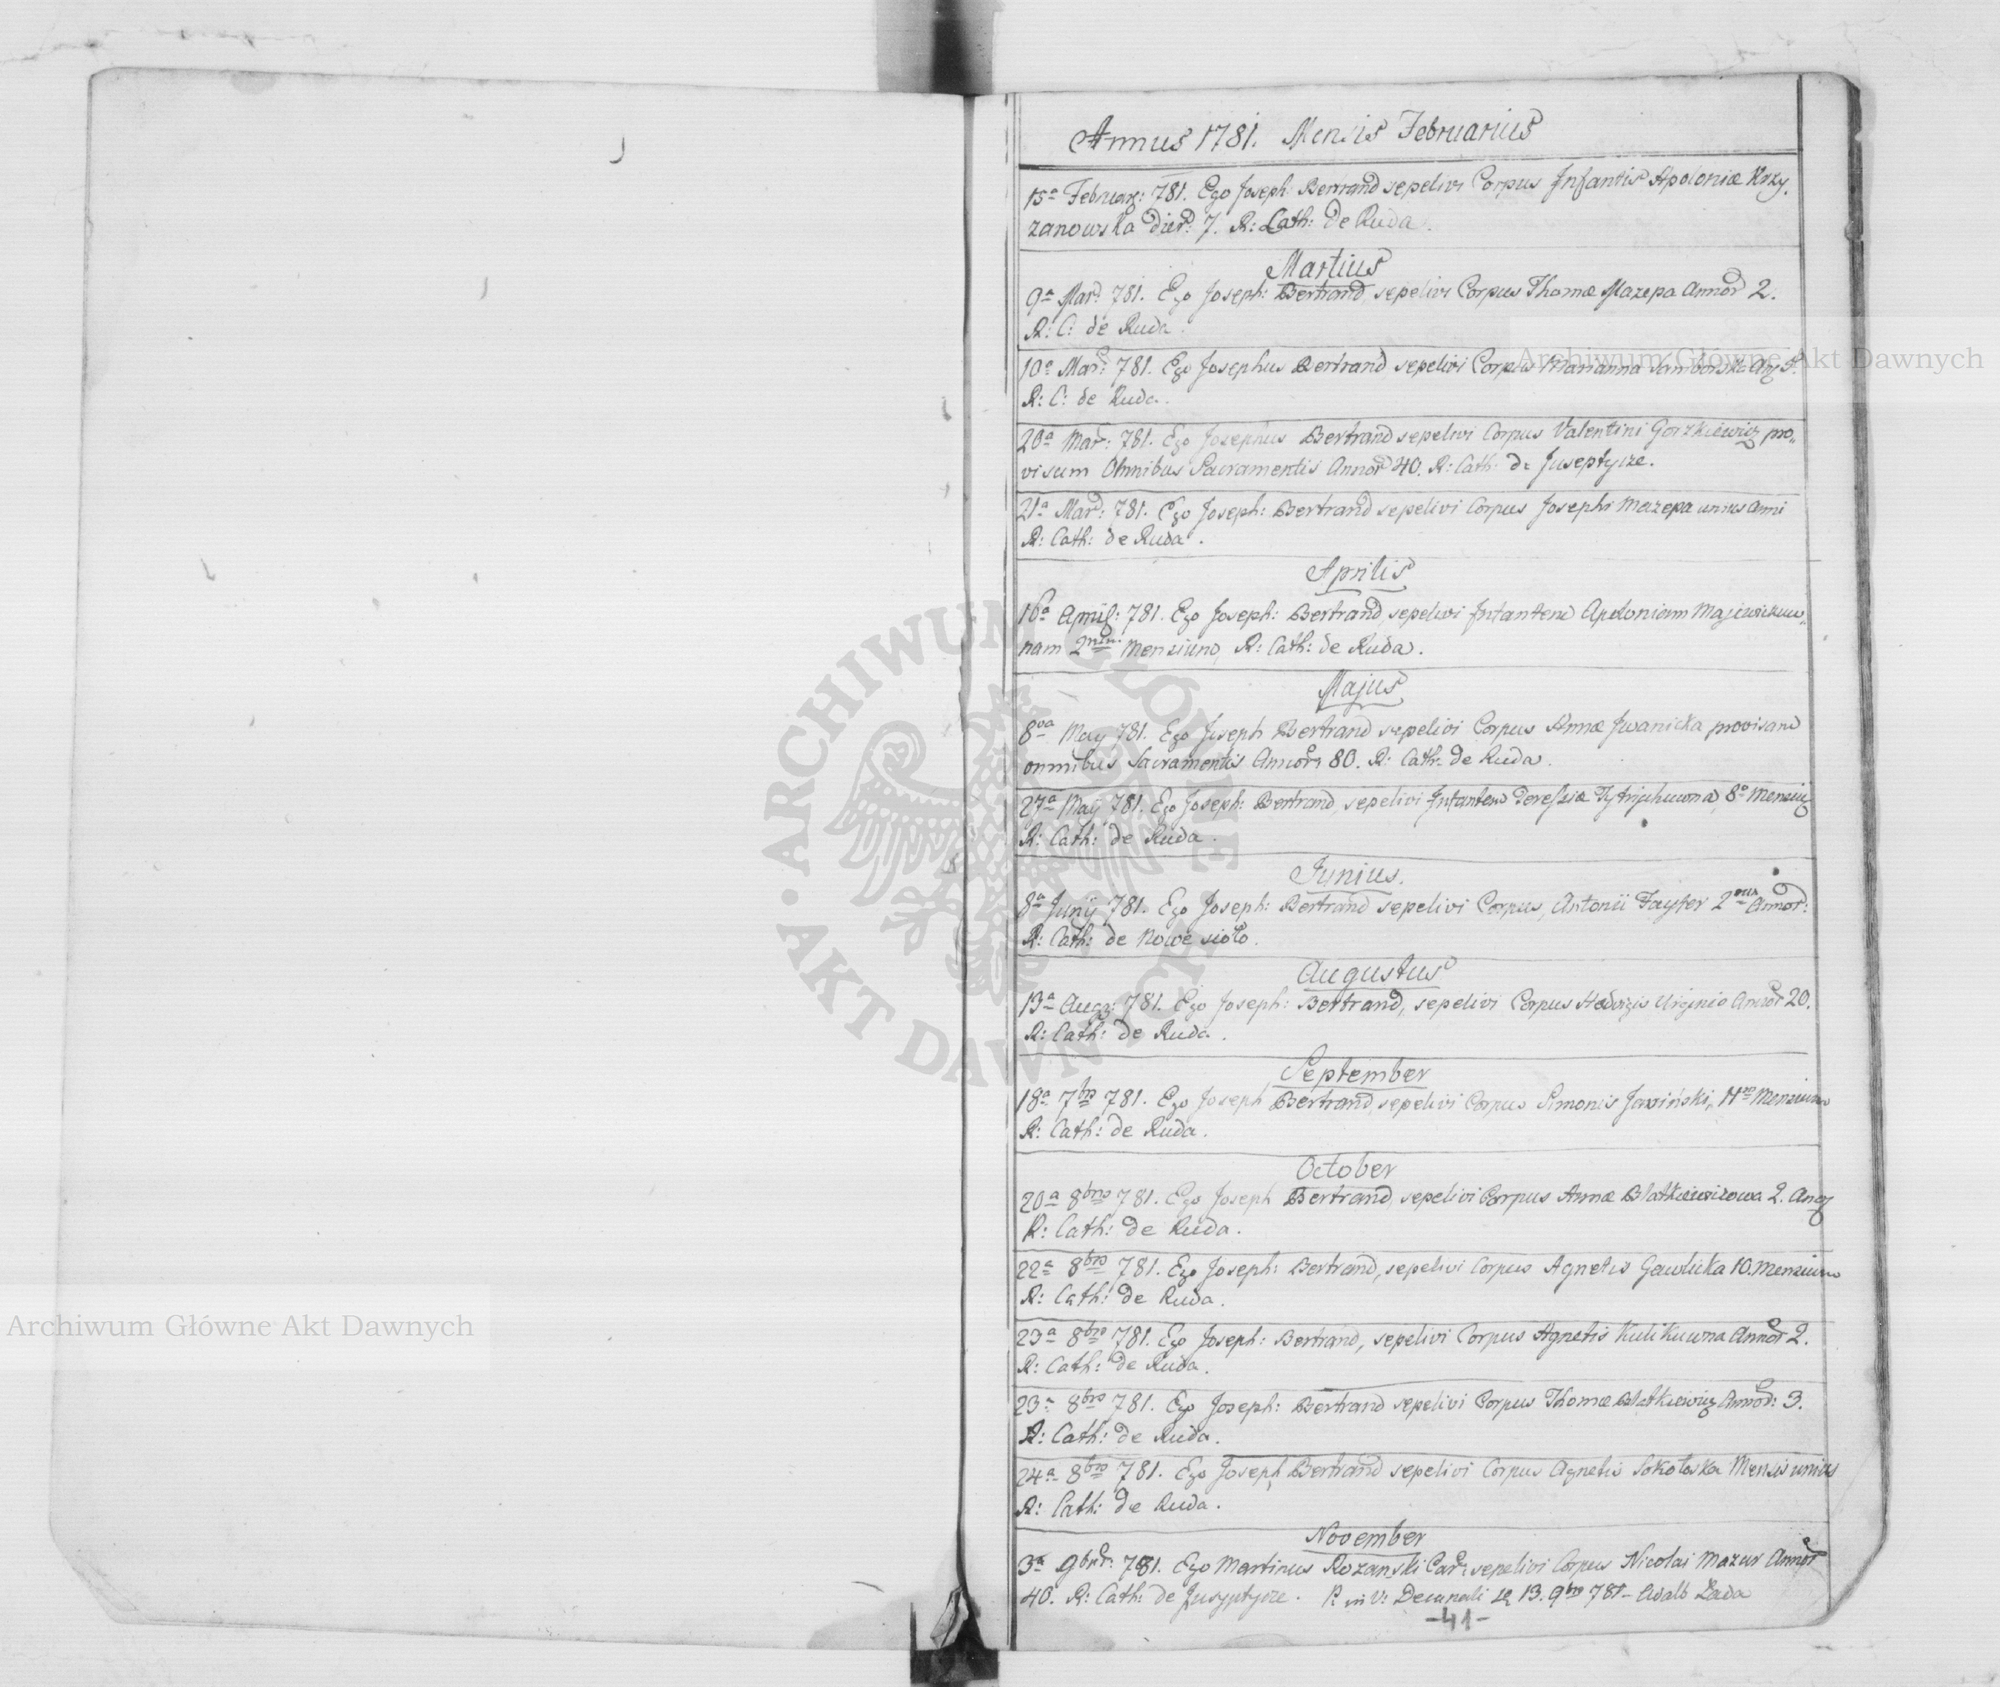 Annus 1781. Mensis Februarius
15a Februar: 781. Ego Joseph Bertrand sepelivi Corpus Infantis Apoloniæ Krzy.
zanowska dier: 7. R: Cath: de Ruda.
Martius
9a Mar: 781. Ego Joseph: Bertrand, sepelivi Corpus Thomæ Mazepa Annor 2.
R: C: de Ruda.
10a Mar: 781. Ego Josephus Bertrand sepelivi Corpus Marianna
R: C: de Ruda.
20a Mar: 781. Ego Josephus Bertrand sepelivi Corpus Valentini Gorzkiewicz pro„
visum Omnibus Sacramentis Annor 40. R: Cath: de
21a Mar: 781. Ego Joseph: Bertrand sepelivi Corpus Josephi Mazepa unius Anni
R: Cath: de Ruda.
Aprilis
16a April: 781. Ego Joseph: Bertrand, sepelivi Infantem Apoloniam
nam Mensium, R: Cath: de Ruda.
Majus
8va May 781. Ego Joseph Bertrand sepelivi Corpus Annæ Jwanicka provisam
omnibus Sacramentis Annor: 80. R: Cath: de Ruda.
27a May 781. Ego Joseph: Bertrand, sepelivi Infantem 8o Mensiu
R: Cath: de Ruda.
Junius.
8a Junij 781. Ego Joseph: Bertrand sepelivi Corpus, Antonii Fayfer Annor:
R: Cath: de Nowe sioło.
Augustus
13a Aug: 781. Ego Joseph: Bertrand, sepelivi Corpus Hedvigis Annor 20.
R: Cath: de Ruda.
September
18a 7bris 781. Ego Joseph Bertrand, sepelivi Corpus Simonis Mensium
R: Cath: de Ruda.
October
20a 8bris 781. Ego Joseph Bertrand, sepelivi Corpus Annæ Blatkiewiczowa 2. An
R: Cath: de Ruda.
22a 8bris 781. Ego Joseph: Bertrand, sepelivi Corpus Agnetis Gawlicka 10. Mensium
R: Cath: de Ruda.
23a 8bris 781. Ego Joseph: Bertrand, sepelivi Corpus Agnetis Kulikuwna Annor 2.
R: Cath: de Ruda.
23a 8bris 781. Ego Joseph: Bertrand sepelivi Corpus Thomæ Blatkiewicz Annor: 3.
R: Cath: de Ruda.
24a 8bris 781. Ego Joseph Bertrand sepelivi Corpus Agnetis Sokołoska Mensis unius
R: Cath: de Ruda.
November
3a 9br: 781. Ego Martinus Rozanski sepelivi Corpus Nicolai Mazur Annor
40. R: Cath: de P: in V: Decanali 13. 9bris 781
-41-
Archiwum Główne Akt Dawnych
Archiwum Główne Akt Dawnych
ARCHIWUM GŁÓWNE · AKT DAWNYCH ·